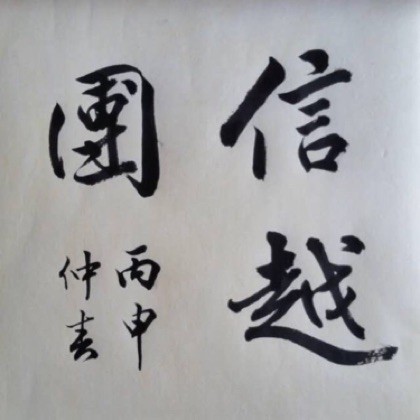 信越
團
丙申
仲春